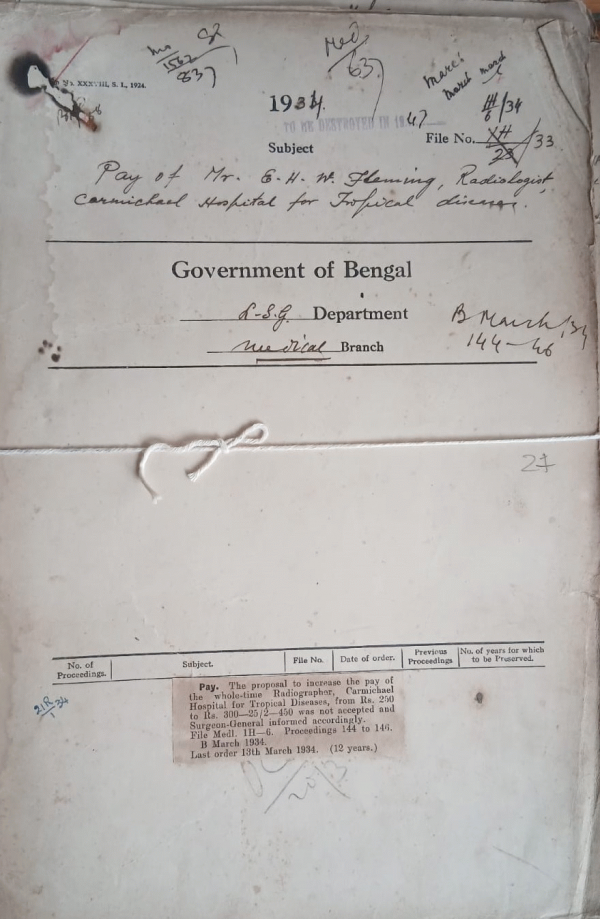 No. XXXVIII, S. I., 1934.
1562
837
Med
63
March
1934.
TO BE DESTROYED IN 1947
III/6/34
File No. XII/23/33
Subject
Pay of Mr. E. H. W. Fleming, Radiologist,
Carmichael Hospital for Tropical diseases.
Government of Bengal
L-S.G. Department
Medical Branch
B March/34
144-46
27
No. of Proceedings. Subject. File No. Date of order. Previous Proceedings No. of years for which to be Preserved.
Pay. The proposal to increase the pay of
the whole-time Radiographer, Carmichael
Hospital for Tropical Diseases, from Rs. 250
to Rs. 300—25/2—450 was not accepted and
Surgeon-General informed accordingly.
File Medl. 1H—6. Proceedings 144 to 146.
B March 1934.
Last order 13th March 1934. (12 years.)